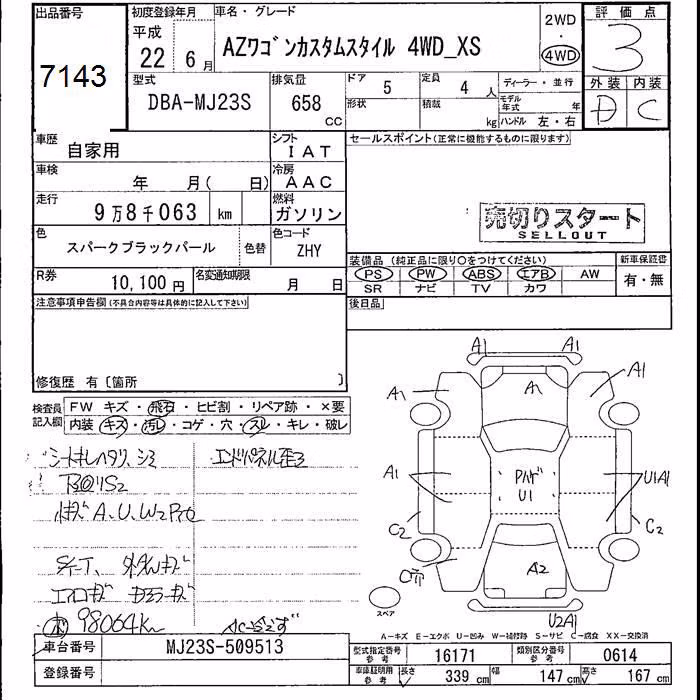 出品番号
7143
初度登録年月
平成
22年 6月
車名・グレード
AZワゴンカスタムスタイル 4WD_XS
2WD
・
4WD
評価点
3
外装 内装
D C
型式
DBA-MJ23S
排気量
658
CC
ドア 5
形状
定員 4 人
積載 kg
ディーラー・並行
モデル年式 年
ハンドル 左・右
車歴
自家用
シフト
IAT
車検
年 月( 日)
冷房
AAC
走行
9万8千063 km
燃料
ガソリン
色
スパークブラックパール
色替
色コード
ZHY
R券
10,100円
名変通知期限
月 日
セールスポイント(正常に機能するものに限ります)
売切りスタート
SELLOUT
装備品 (純正品に限り○をつけてください)
PS PW ABS エアB AW
SR ナビ TV カワ
新車保証書
有・無
注意事項申告欄(不具合内容等は具体的に記入して下さい)
後日品
修復歴 有〔箇所 〕
検査員記入欄
FW キズ・飛石・ヒビ割・リペア跡・×要
内装 キズ・汚レ・コゲ・穴・スレ・キレ・破レ
エンドパネル歪
A.U.W2
98064km
A1 A1
A1 A1 A1
A1 U1 U1A1
C2 C2
A2
U2A1
スペア
A-キズ E-エクボ U-凹み W-補修跡 S-サビ C-腐食 XX-交換済
車台番号
MJ23S-509513
登録番号
型式指定番号
参考
16171
類別区分番号
参考
0614
車庫証明用
参考
長さ 339 cm
幅 147 cm
高さ 167 cm